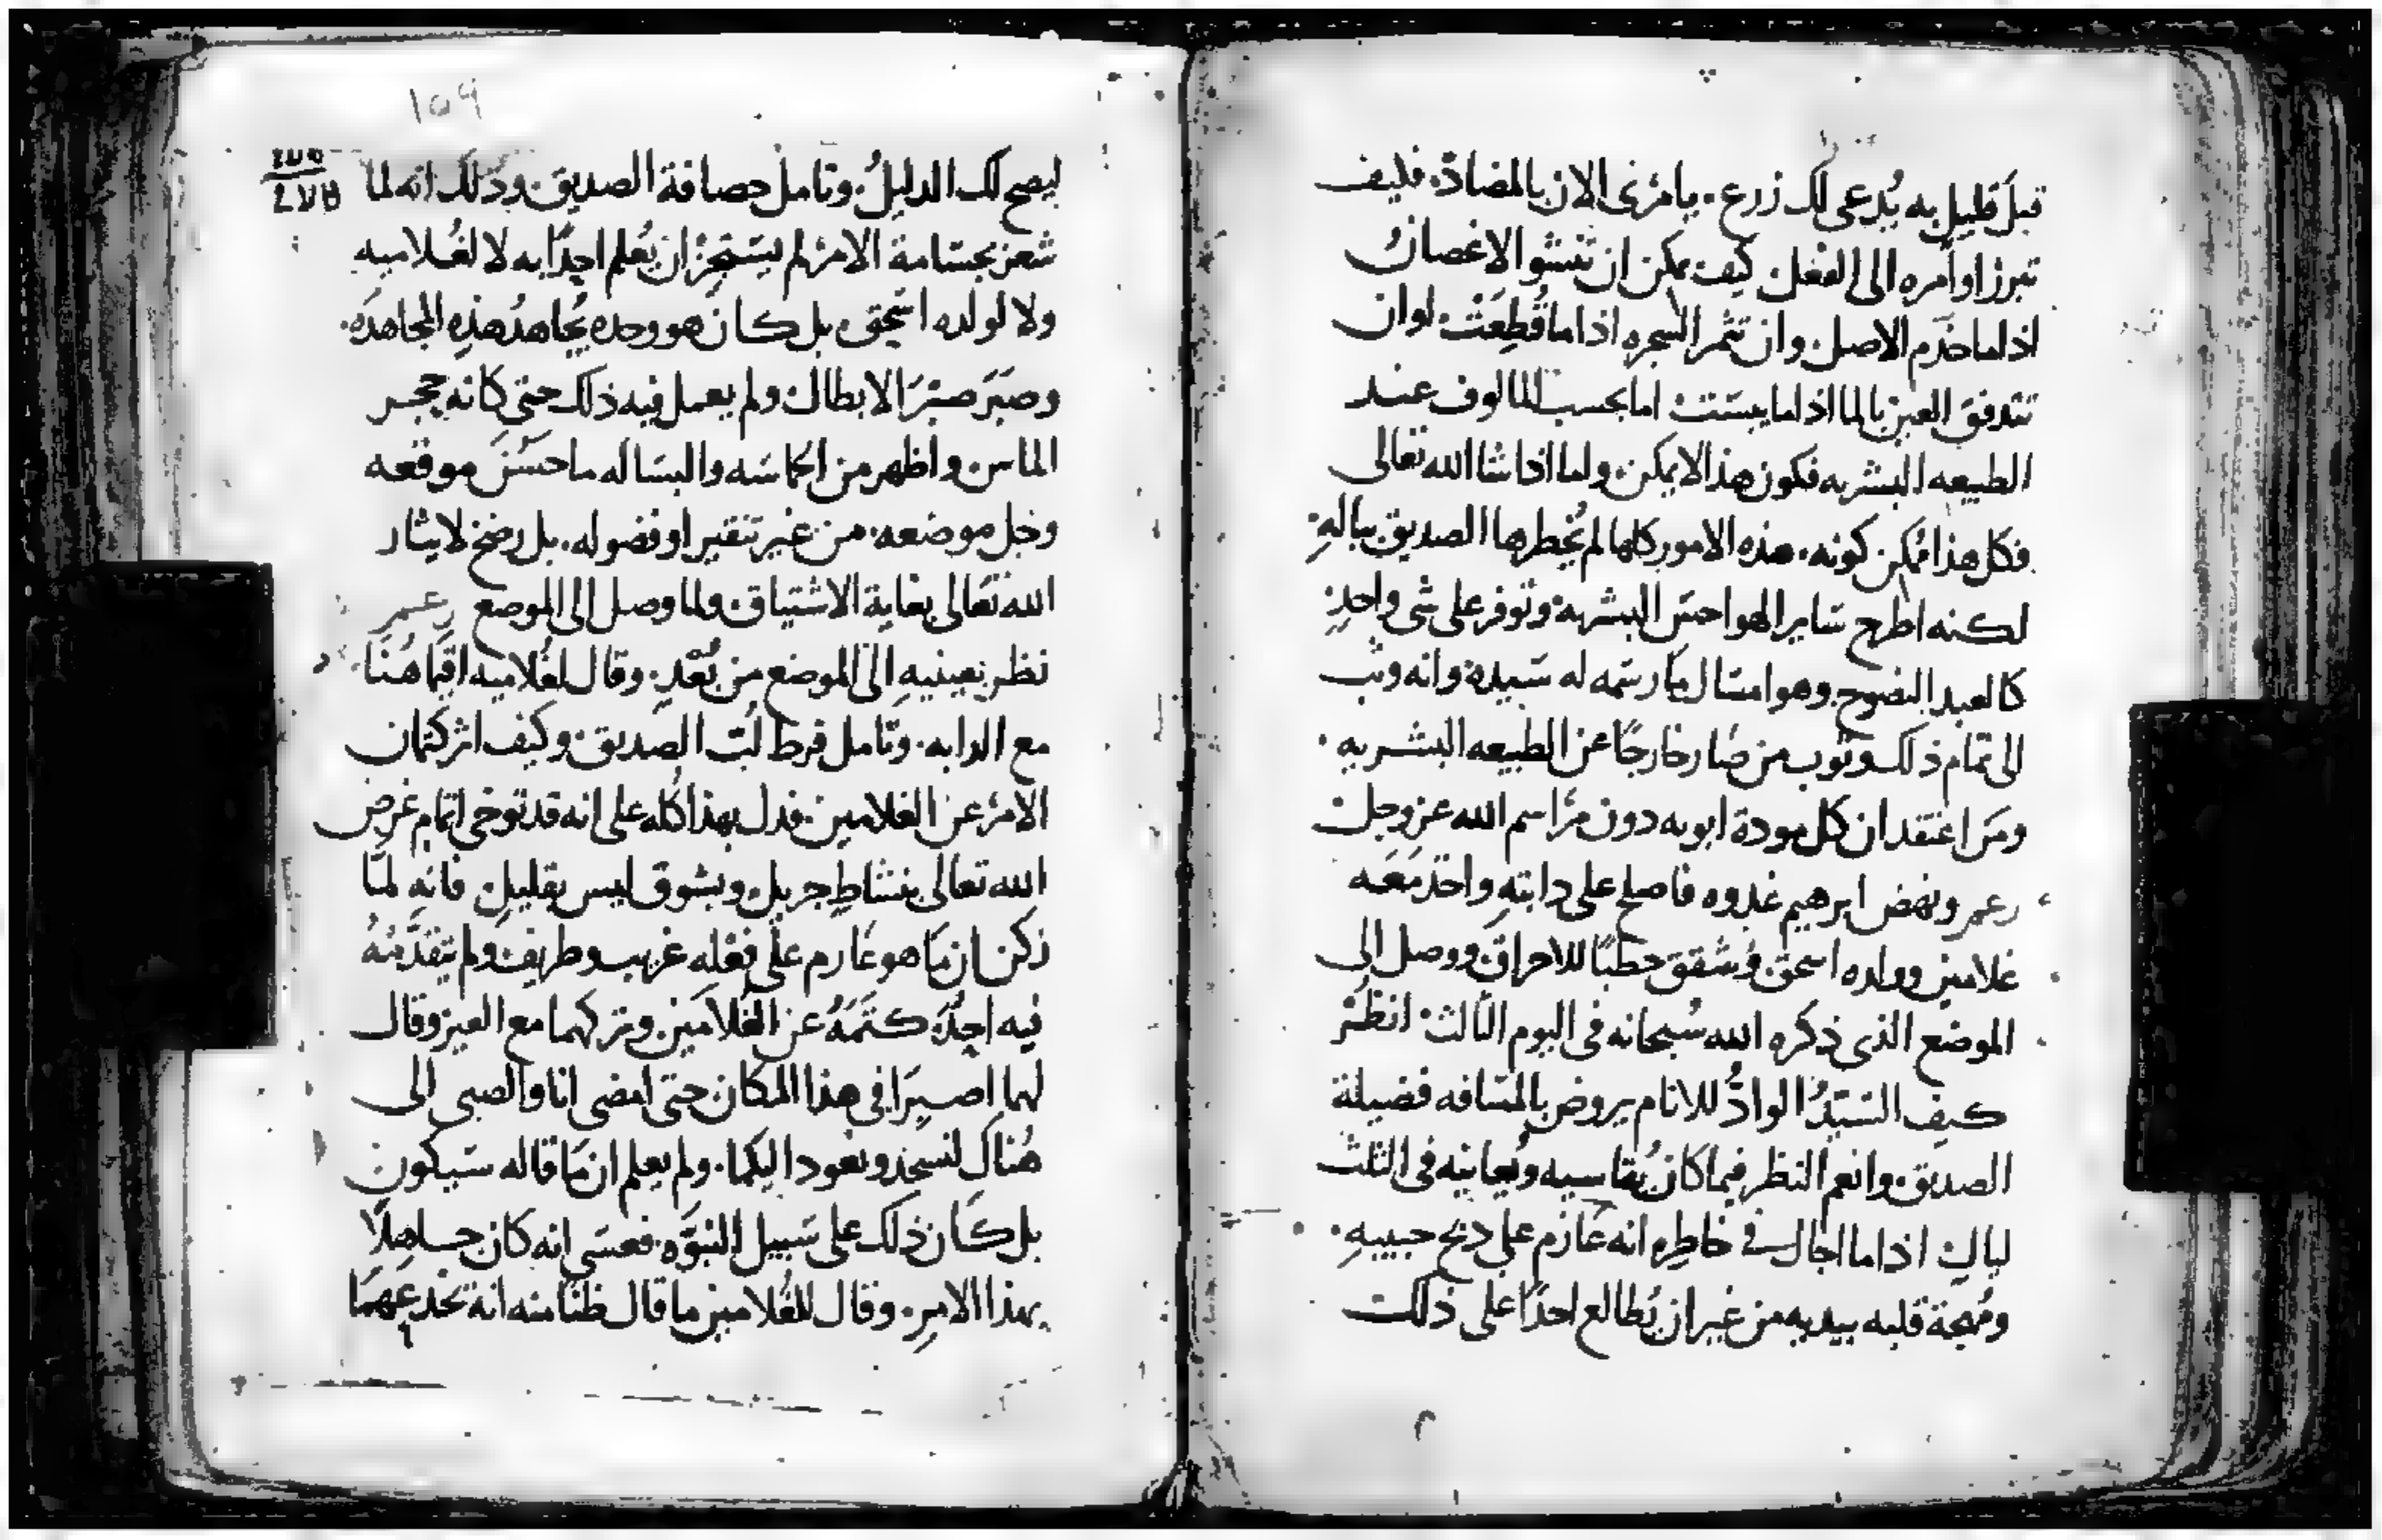 قبل قليل به يُدعى لك زرع. يامرنى الان بالمضادّ. فكيف
تبرز اوامره الى الفعل كيف يمكن ان تنشو الاغصانُ
اذا ما خذم الاصل. وان تثمر الشجره اذا ما قُطِعَتْ. لو ان
تتدفق العين بالما اذا ما يبست. اما بحسب المالوف عند
الطبيعه البشريه فكون هذا لا يمكن. واما اذا شا الله تعالى
فكل هذا ممكن كونه. هذه الامور كلها لم يُخطرها الصديق بباله.
لكنه اطرح ساير الهواجس البشريه وتوفر على شى واحدٍ
كالعبد النصوح وهو امتثال ما رسمه له سيده. وانه وثب
الى تمام ذلك وثوب من صَار خارجًا عن الطبيعه البشريه.
ومَن اعتقد ان كل مودة ابويه دون مراسم الله عز وجل
ونهض ابرهيم غدوه فاصلح على دابتهِ واخذ مَعَه
غلامين وولده اسحق. وشقق حطبًا للاحراق. ووصل الى
الموضع الذى ذكره الله سُبحانه فى اليوم الثالث. انظُرْ
كيف السَيّدُ الوادُّ للانام يروض بالمسافه فضيلة
الصديق. وانعم النظر فيما كان يُقاسيه ويُعاينه فى الثلث
ليالٍ اذا ما اجال فى خاطِرِه انه عَازم على ذبح حبيبهِ.
ومُهجة قلبه بيديه من غير ان يُطالع احدًا على ذلك
١٥٩
ليصح لك الدليلُ. وتامل حصافة الصديق. وذلك انه لما
شعر بجسامة الامر لم يستجز ان يُعلم احِدًا به لا لغُلاميه
ولا لولده اسحق. بل كان هو وحده يُجاهدُ هذه المجاهدَه.
وصَبَر صَبْرَ الابطال ولم يعمل فيه ذلك حتى كانه حجر
الماس. واظهر من الحماسَه والبسَاله ما حسَنَ موقعه
وجل موضعه. من غير تنقير او فضوله. بل رضخ لايثار
الله تعَالى بغاية الاشتياق. ولما وصل الى الموضع
نظر بعينيهِ الى الموضع من بُعْدٍ. وقال لغُلاميه اقيما هُنَا
مع الدابه. وتامل فرط لُبّ الصديق. وكيف اثر كتمان
الامر عن الغلامين. فدل بهذا كُله على انه قد توخى اتمام غرض
الله تعالى بنشاطٍ جزيل. وبشوق ليس بقليلٍ فانهِ لمَّا
زكن ان مَا هو عَازم على فعْلِه غريب وطريف. ولم يتقدَّمهُ
فيه احِدٌ. كتَمَهُ عن الغُلامَين. وتركهما مع العير وقال
لهما اصبِرَا فى هذا المكان حتى امضى انا والصبى الى
هُناك لنسجد ونعود اليكما. ولم يعلم ان مَا قاله سَيكون
بل كَان ذلك على سَبيل النبَوّه. فعسَى انه كان جاهِلًا
بهذا الامرِ. وقال للغُلامين ما قال ظنًا منه انه يخدعهمَا